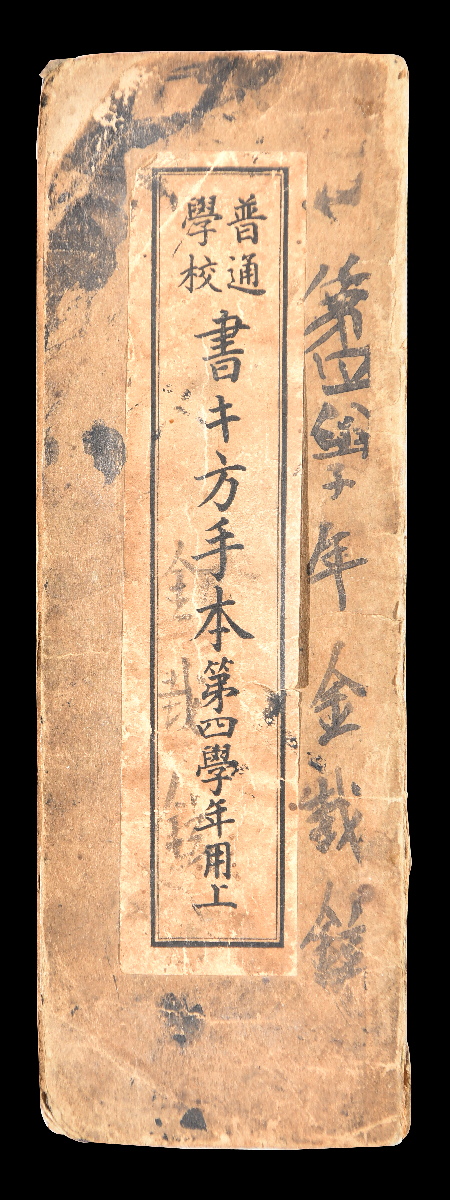 第四學年 金載
普通
學校
書キ方手本第四學年用上
金載